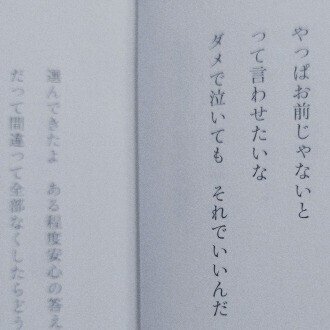 やっぱお前じゃないと
って言わせたいな
ダメで泣いても　それでいいんだ
選んできたよ　ある程度安心の答え
だって間違って全部なくしたらどう